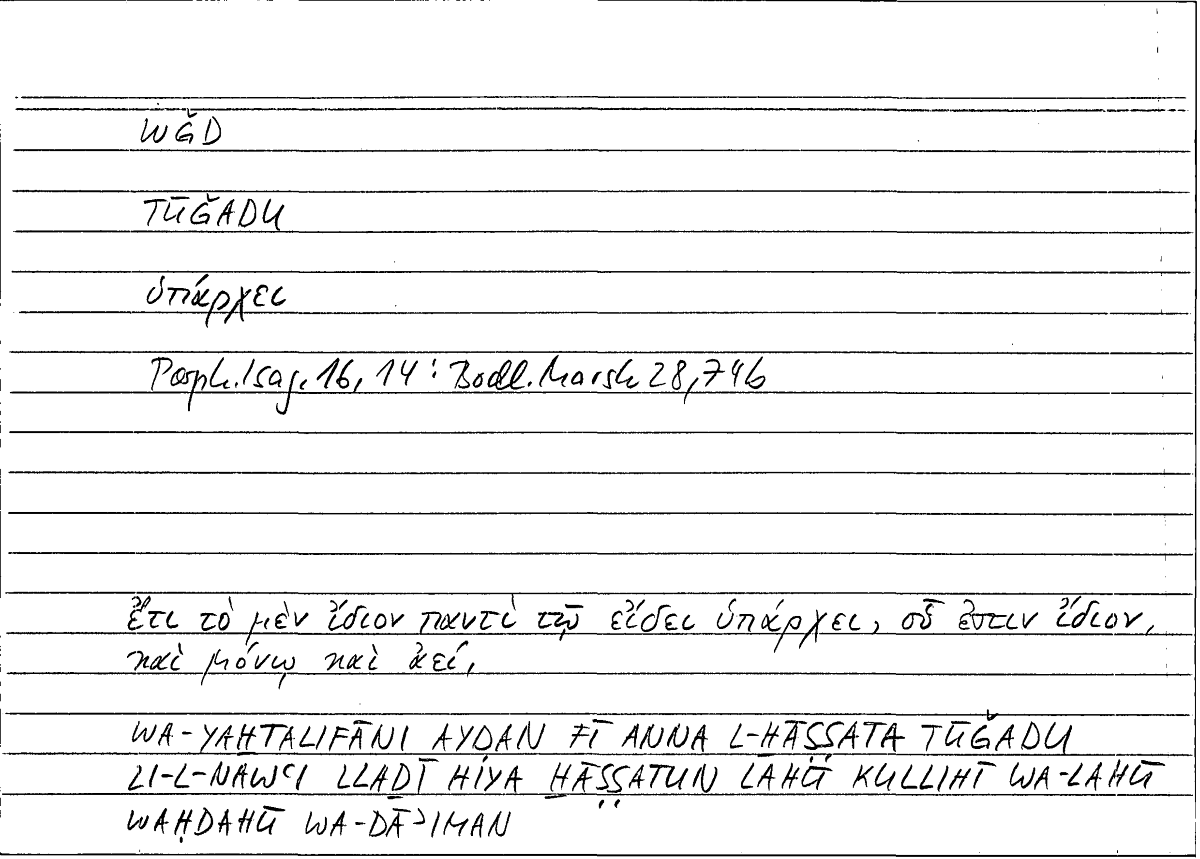 WǦD
TŪǦADU
ὑπάρχει
Porph. Isag. 16, 14 : Bodl. Marsh 28, 74b
ἔτι τὸ μὲν ἴδιον παντὶ τῷ εἴδει ὑπάρχει, οὗ ἐστιν ἴδιον,
καὶ μόνῳ καὶ ἀεί,
WA-YAḪTALIFĀNI AYḌAN FĪ ANNA L-ḪĀṢṢATA TŪǦADU
LI-L-NAWʿI LLAḎĪ HIYA ḪĀṢṢATUN LAHŪ KULLIHĪ WA-LAHŪ
WAḤDAHŪ WA-DĀʾIMAN